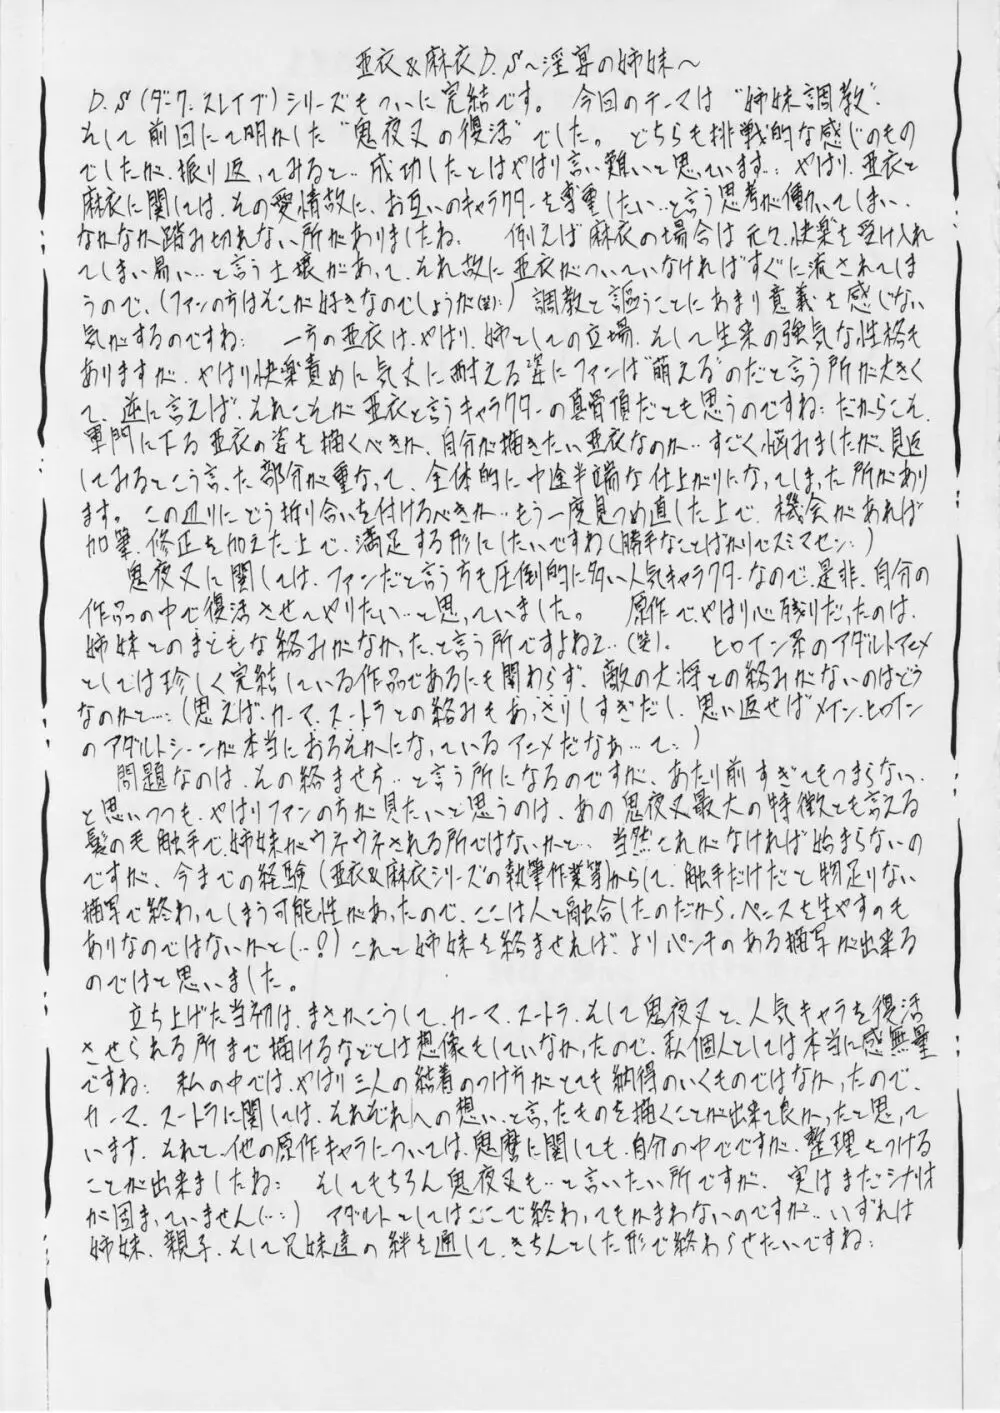 亜衣&麻衣D.S～淫宴の姉妹～
D.S(ダーク.スレイブ)シリーズもついに完結です。 今回のテーマは"姉妹調教"、
そして前回にて明かした"鬼夜叉の復活"でした。 どちらも挑戦的な感じのもの
でしたが、振り返ってみると…成功したとはやはり言い難いと思っています… やはり、亜衣と
麻衣に関しては、その愛情故に、お互いのキャラクターを尊重したい…と言う思考が働いてしまい、
なかなか踏み切れない所がありましたね、 例えば麻衣の場合は元々、快楽を受け入れ
てしまい易い…と言う土壌があって、それ故に亜衣がついていなければすぐに流されてしま
うので、(ファンの方はそこが好きなのでしょうが(笑)…)調教と謳うことにあまり意義を感じない
気がするのですね… 一方の亜衣は、やはり、姉としての立場、そして生来の強気な性格も
ありますが、やはり快楽責めに気丈に耐える姿にファンは"萌える"のだと言う所が大きく
て、逆に言えば、それこそが亜衣と言うキャラクターの真骨頂だとも思うのですね… だからこそ、
軍門に下る亜衣の姿を描くべきか、自分が描きたい亜衣なのか…すごく悩みましたが、見返
してみるとこう言った部分が重なって、全体的に中途半端な仕上がりになってしまった所があり
ます。 この辺りにどう折り合いを付けるべきか…もう一度見つめ直した上で、機会があれば
加筆、修正を加えた上で、満足する形にしたいですね(勝手なことばかりでスミマセン…)
鬼夜叉に関しては、ファンだと言う方も圧倒的に多い人気キャラクターなので、是非、自分の
作品の中で復活させてやりたい…と思っていました。 原作で、やはり心残りだったのは、
姉妹とのまともな絡みがなかった、と言う所ですよねェ…(笑)。 ヒロイン系のアダルトアニメ
としては珍しく完結している作品であるにも関わらず、敵の大将との絡みがないのはどう
なのかと…(思えば、カーマ、スートラとの絡みもあっさりしすぎだし、思い返せばメイン.ヒロイン
のアダルトシーンが本当におろそかになっているアニメだなぁ…て…)
問題なのは、その絡ませ方…と言う所になるのですが、あたり前すぎてもつまらない、
と思いつつも、やはりファンの方が見たいと思うのは、あの鬼夜叉最大の特徴とも言える
髪の毛触手で、姉妹がウネウネされる所ではないかと… 当然これがなければ始まらないの
ですが、今までの経験(亜衣&麻衣シリーズの執筆作業等)からして、触手だけだと物足りない
描写で終わってしまう可能性があったので、ここは人と融合したのだから、ペニスを生やすのも
ありなのではないかと(…?)これと姉妹を絡ませれば、よりパンチのある描写が出来る
のではと思いました。
立ち上げた当初は、まさかこうして、カーマ、スートラ、そして鬼夜叉と、人気キャラを復活
させられる所まで描けるなどとは想像もしていなかったので、私個人としては本当に感無量
ですね… 私の中では、やはり三人の結着のつけ方がとても納得のいくものではなかったので、
カーマ、スートラに関しては、それぞれへの想い、と言ったものを描くことが出来て良かったと思って
います、それと、他の原作キャラについては、鬼麿に関しても、自分の中でですが、整理をつける
ことが出来ましたね… そしてもちろん鬼夜叉も…と言いたい所ですが、実はまだシナリオ
が固まっていません(…) アダルトとしてはここで終わってもかまわないのですが…いずれは
姉妹、親子、そして兄妹達の絆を通して、きちんとした形で終わらせたいですね…